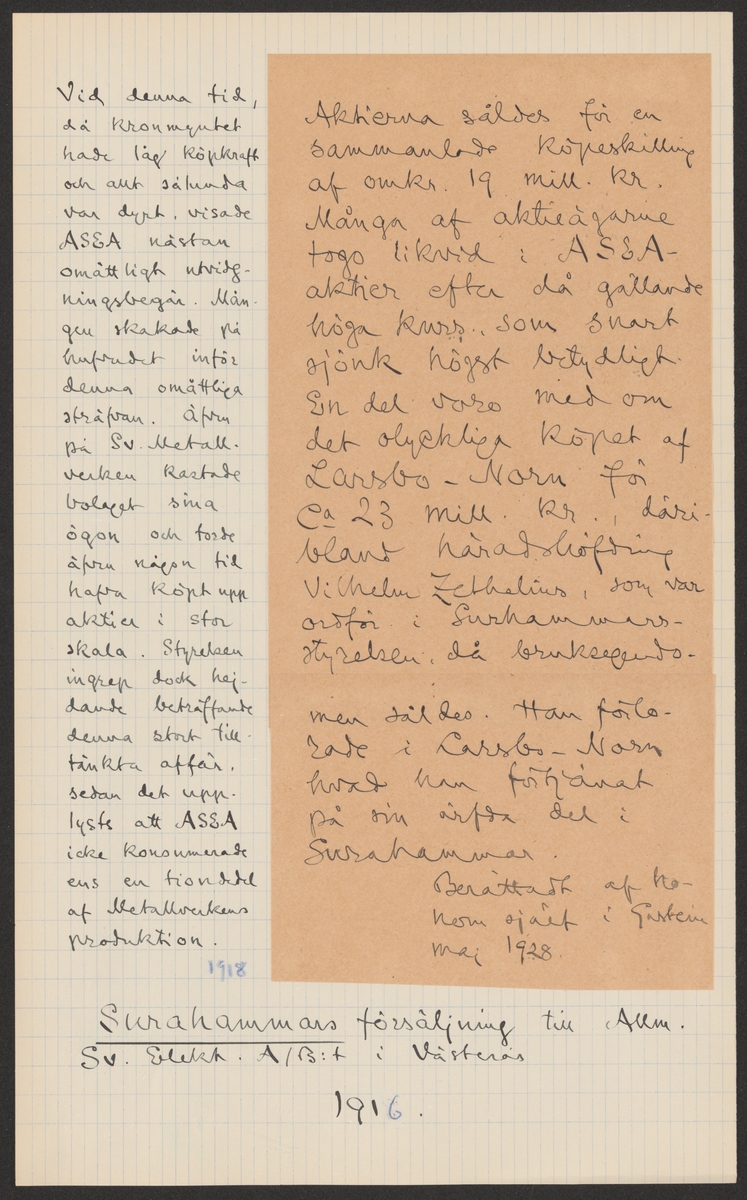 Vid denna tid,
då kronmyntet
hade låg köpkraft
och allt sålunda
var dyrt, visade
ASEA nästan
omåttligt utvidg-
ningsbegär. Mån-
gen skakade på
hufvudet inför
denna omåttliga
sträfvan. Äfven
på Sv. Metall-
verken kastade
bolaget sina
ögon och torde
äfven någon tid
hafva köpt upp
aktier i stor
skala. Styrelsen
ingrep dock hej-
dande beträffande
denna stort till-
tänkta affär,
sedan det upp-
lysts att ASEA
icke konsumerade
ens en tiondedel
af Metallverkens
produktion.
1918
Aktierna såldes för en
sammanlade köpeskilling
af omkr. 19 mill. kr.
Många af aktieägarne
togo likvid i ASEA-
aktier efter då gällande
höga kurs, som snart
sjönk högst betydligt.
En del voro med om
det olyckliga köpet af
Larsbo-Norn för
Ca 23 mill. kr., däri-
bland häradshöfding
Vilhelm Zethelius, som var
ordför. i Surhammars-
styrelsen, då bruksegendo-
men såldes. Han förlo-
rade i Larsbo-Norn
hvad han förtjänat
på sin ärfda del i
Surahammar.
Berättadt af ho-
nom sjelf i Gastein
maj 1928.
Surahammars försäljning till Allm.
Sv. Elekt. A/B:t i Västerås
1916.